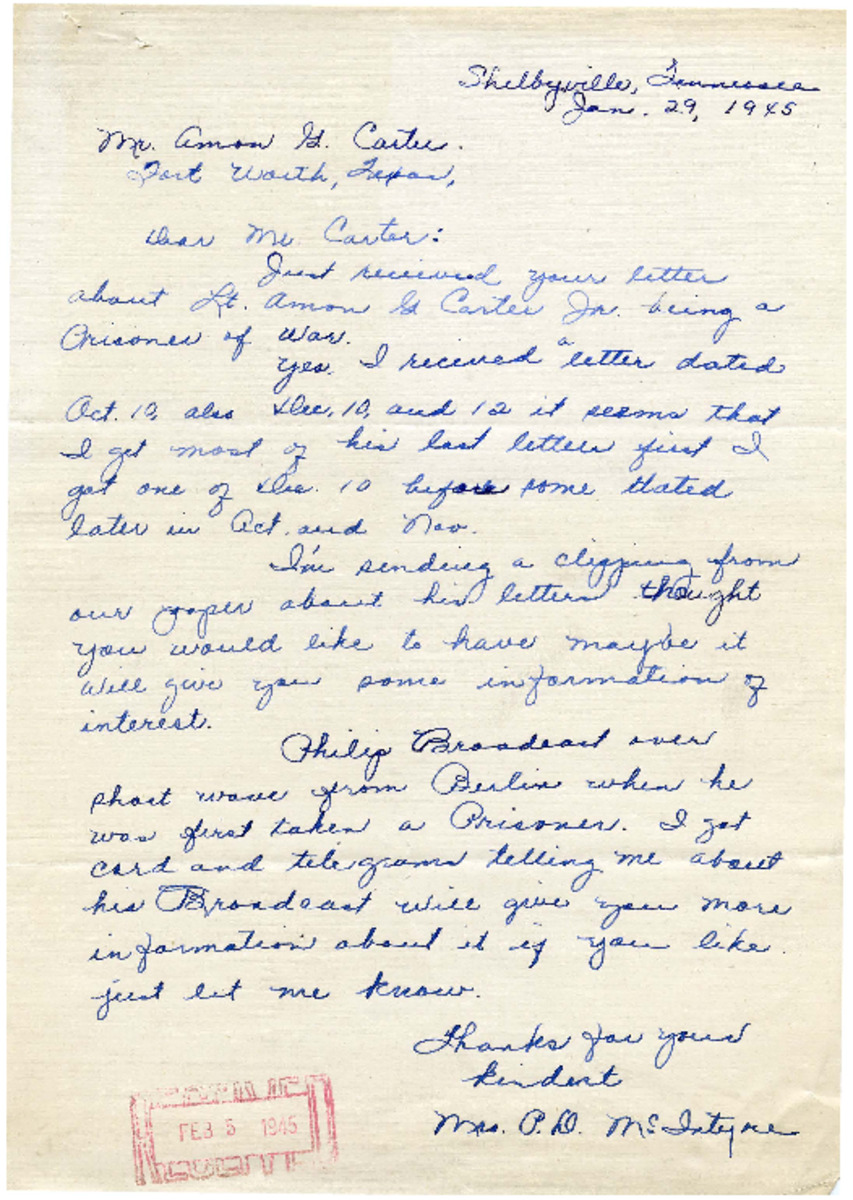 Shelbyville, Tennessee
Jan. 29, 1945
Mr. Amon G. Carter.
Fort Worth, Texas,
Dear Mr. Carter:
Just received your letter
about Lt. Amon G Carter Jr. being a
Prisoner of War.
Yes. I received a letter dated
Oct. 10, also Dec. 10, and 12 it seems that
I get most of his last letters first I
got one of Dec. 10 before some dated
later in Oct. and Nov.
I'm sending a clipping from
our paper about his letters thought
you would like to have maybe it
will give you some information of
interest.
Philip Broadcast over
short wave from Berlin when he
was first taken a Prisoner. I got
card and telegrams telling me about
his Broadcast will give you more
information about it if you like.
just let me know.
Thanks for your
kindest
Mrs. P.D. McIntyre
FEB 5 1945